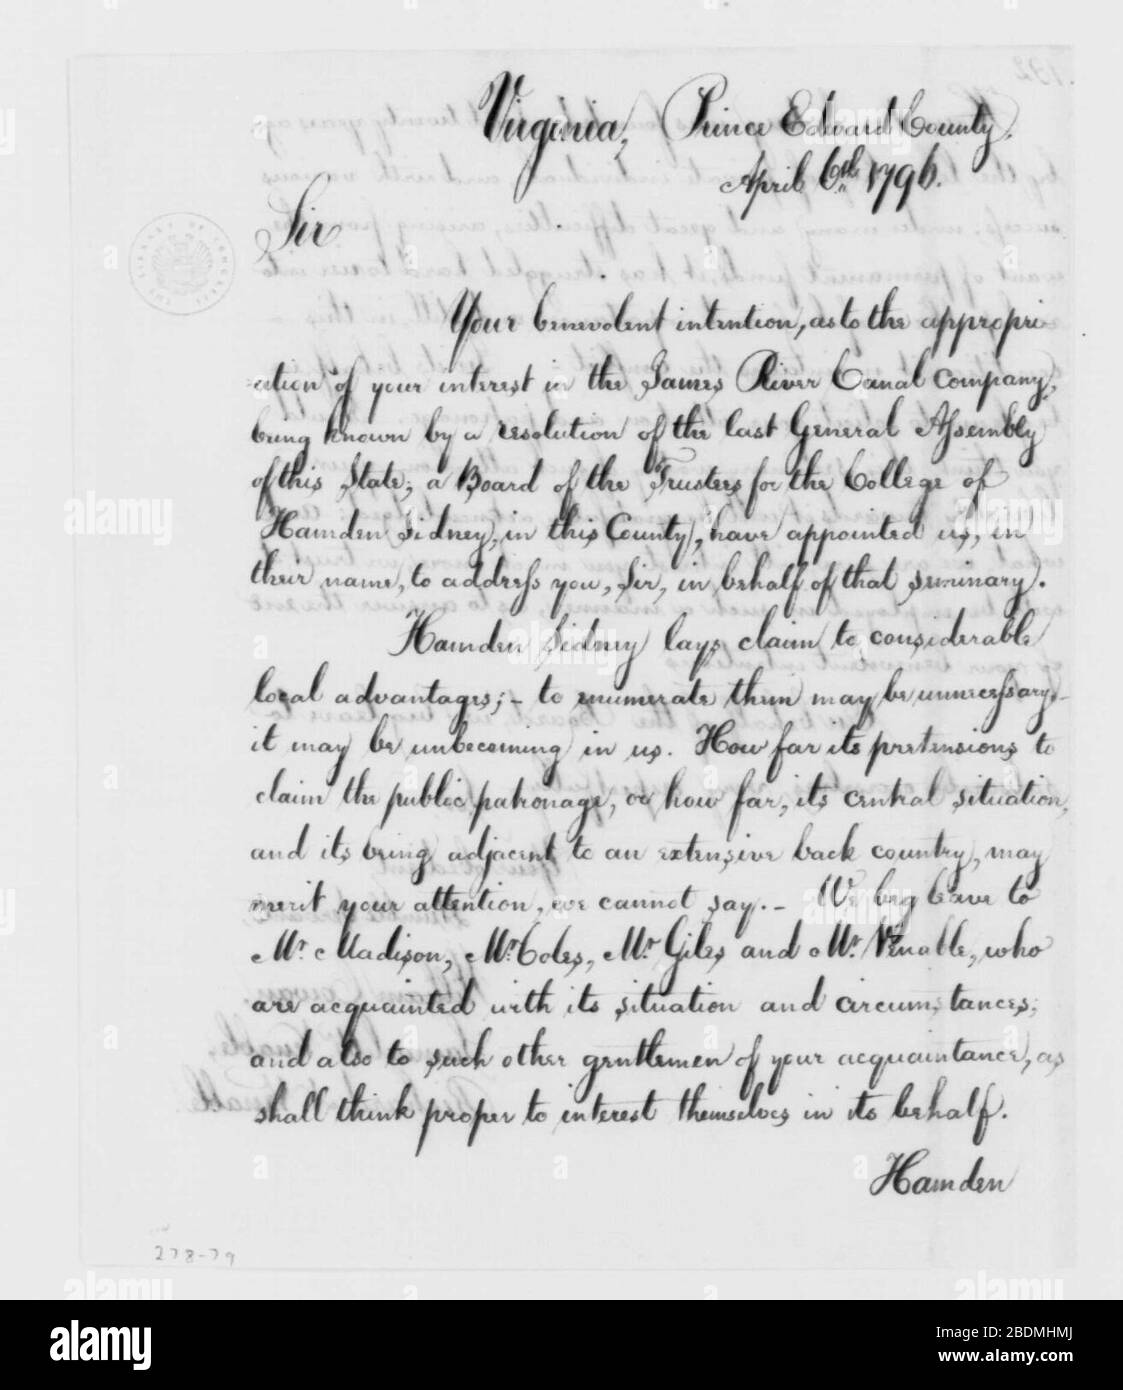 Virginia, Prince Edward County,
April 6th 1796.
Sir
Your benevolent intention, as to the appropri-
-ation of your interest in the James River Canal Company,
being known by a resolution of the last General Assembly
of this State; a Board of the Trustees for the College of
Hamden Sidney, in this County, have appointed us, in
their name, to address you, Sir, in behalf of that seminary.
Hamden Sidney lays claim to considerable
local advantages; - to enumerate them may be unnecessary,-
it may be unbecoming in us. How far its pretensions to
claim the public patronage, or how far, its central situation,
and its being adjacent to an extensive back country, may
merit your attention, we cannot say. - We beg leave to
Mr. Madison, Mr. Coles, Mr. Giles and Mr. Venable, who
are acquainted with its situation and circumstances;
and also to such other gentlemen of your acquaintance, as
shall think proper to interest themselves in its behalf.
Hamden
278-79
alamy
Image ID: 2BDMHMJ
www.alamy.com